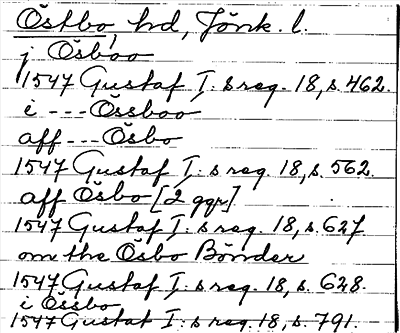 Östbo, hd, Jönk. l.
j Ösboo
1547 Gustaf I: s reg. 18, s. 462.
i --- Össboo
aff --- Ösbo
1547 Gustaf I: s reg. 18, s. 562.
aff Ösbo [2 ggr]
1547 Gustaf I: s reg. 18, s. 627
om the Ösbo Bönder
1547 Gustaf I: s reg. 18, s. 628.
i Össbo
1547 Gustaf I: s reg. 18, s. 791.